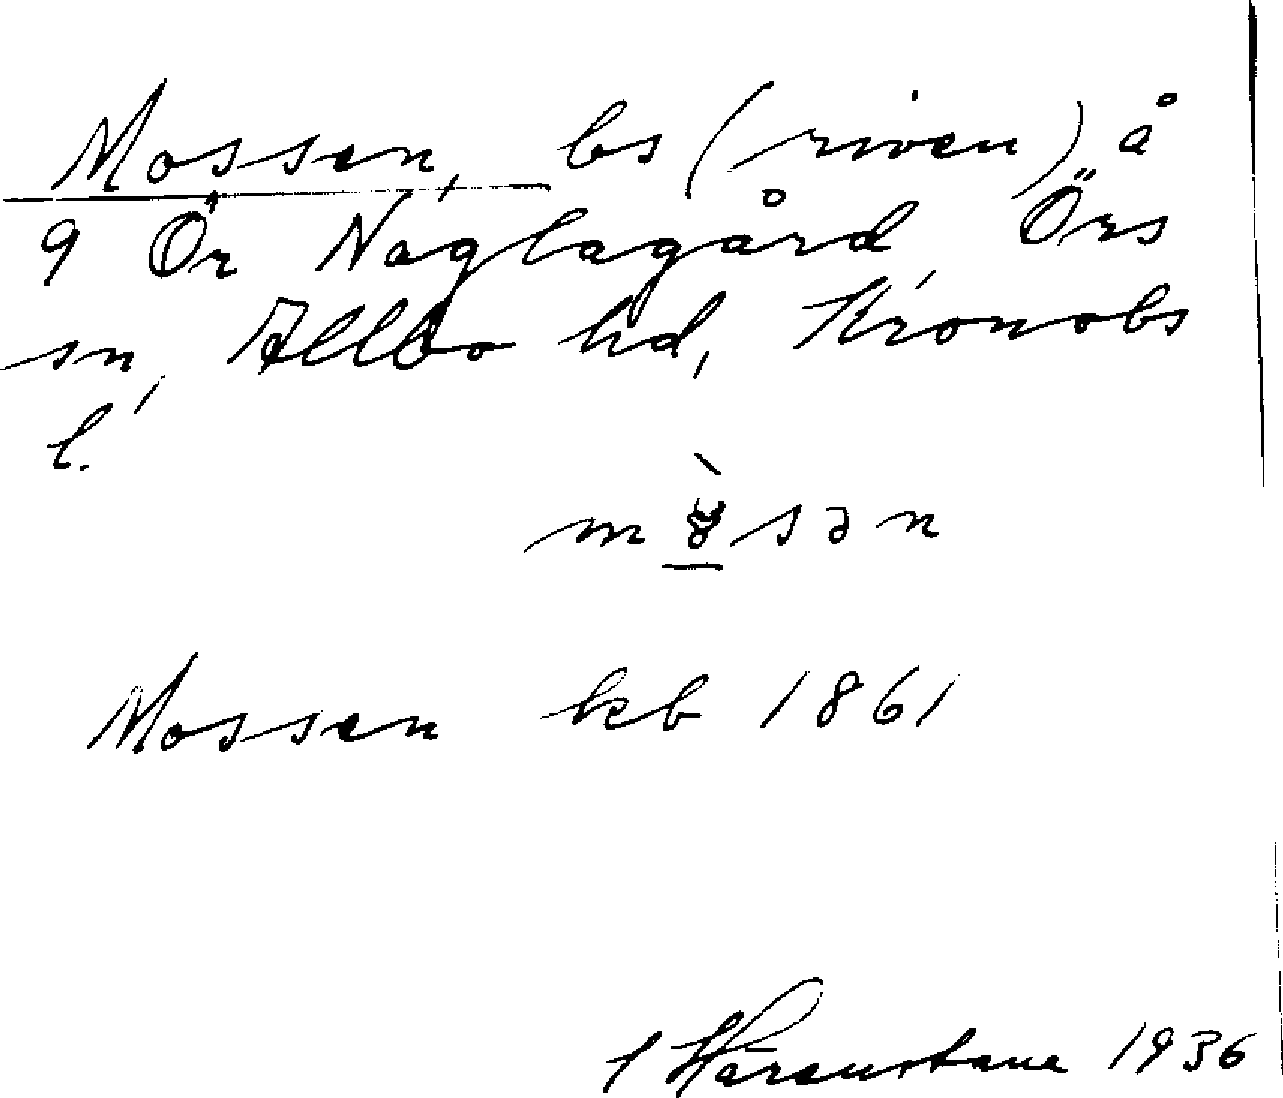 Mossen, bs (riven) å
9 Ör Naglagård, Örs
sn, Allbo hd, Kronobs
l.
Mossen kb 1861
1936